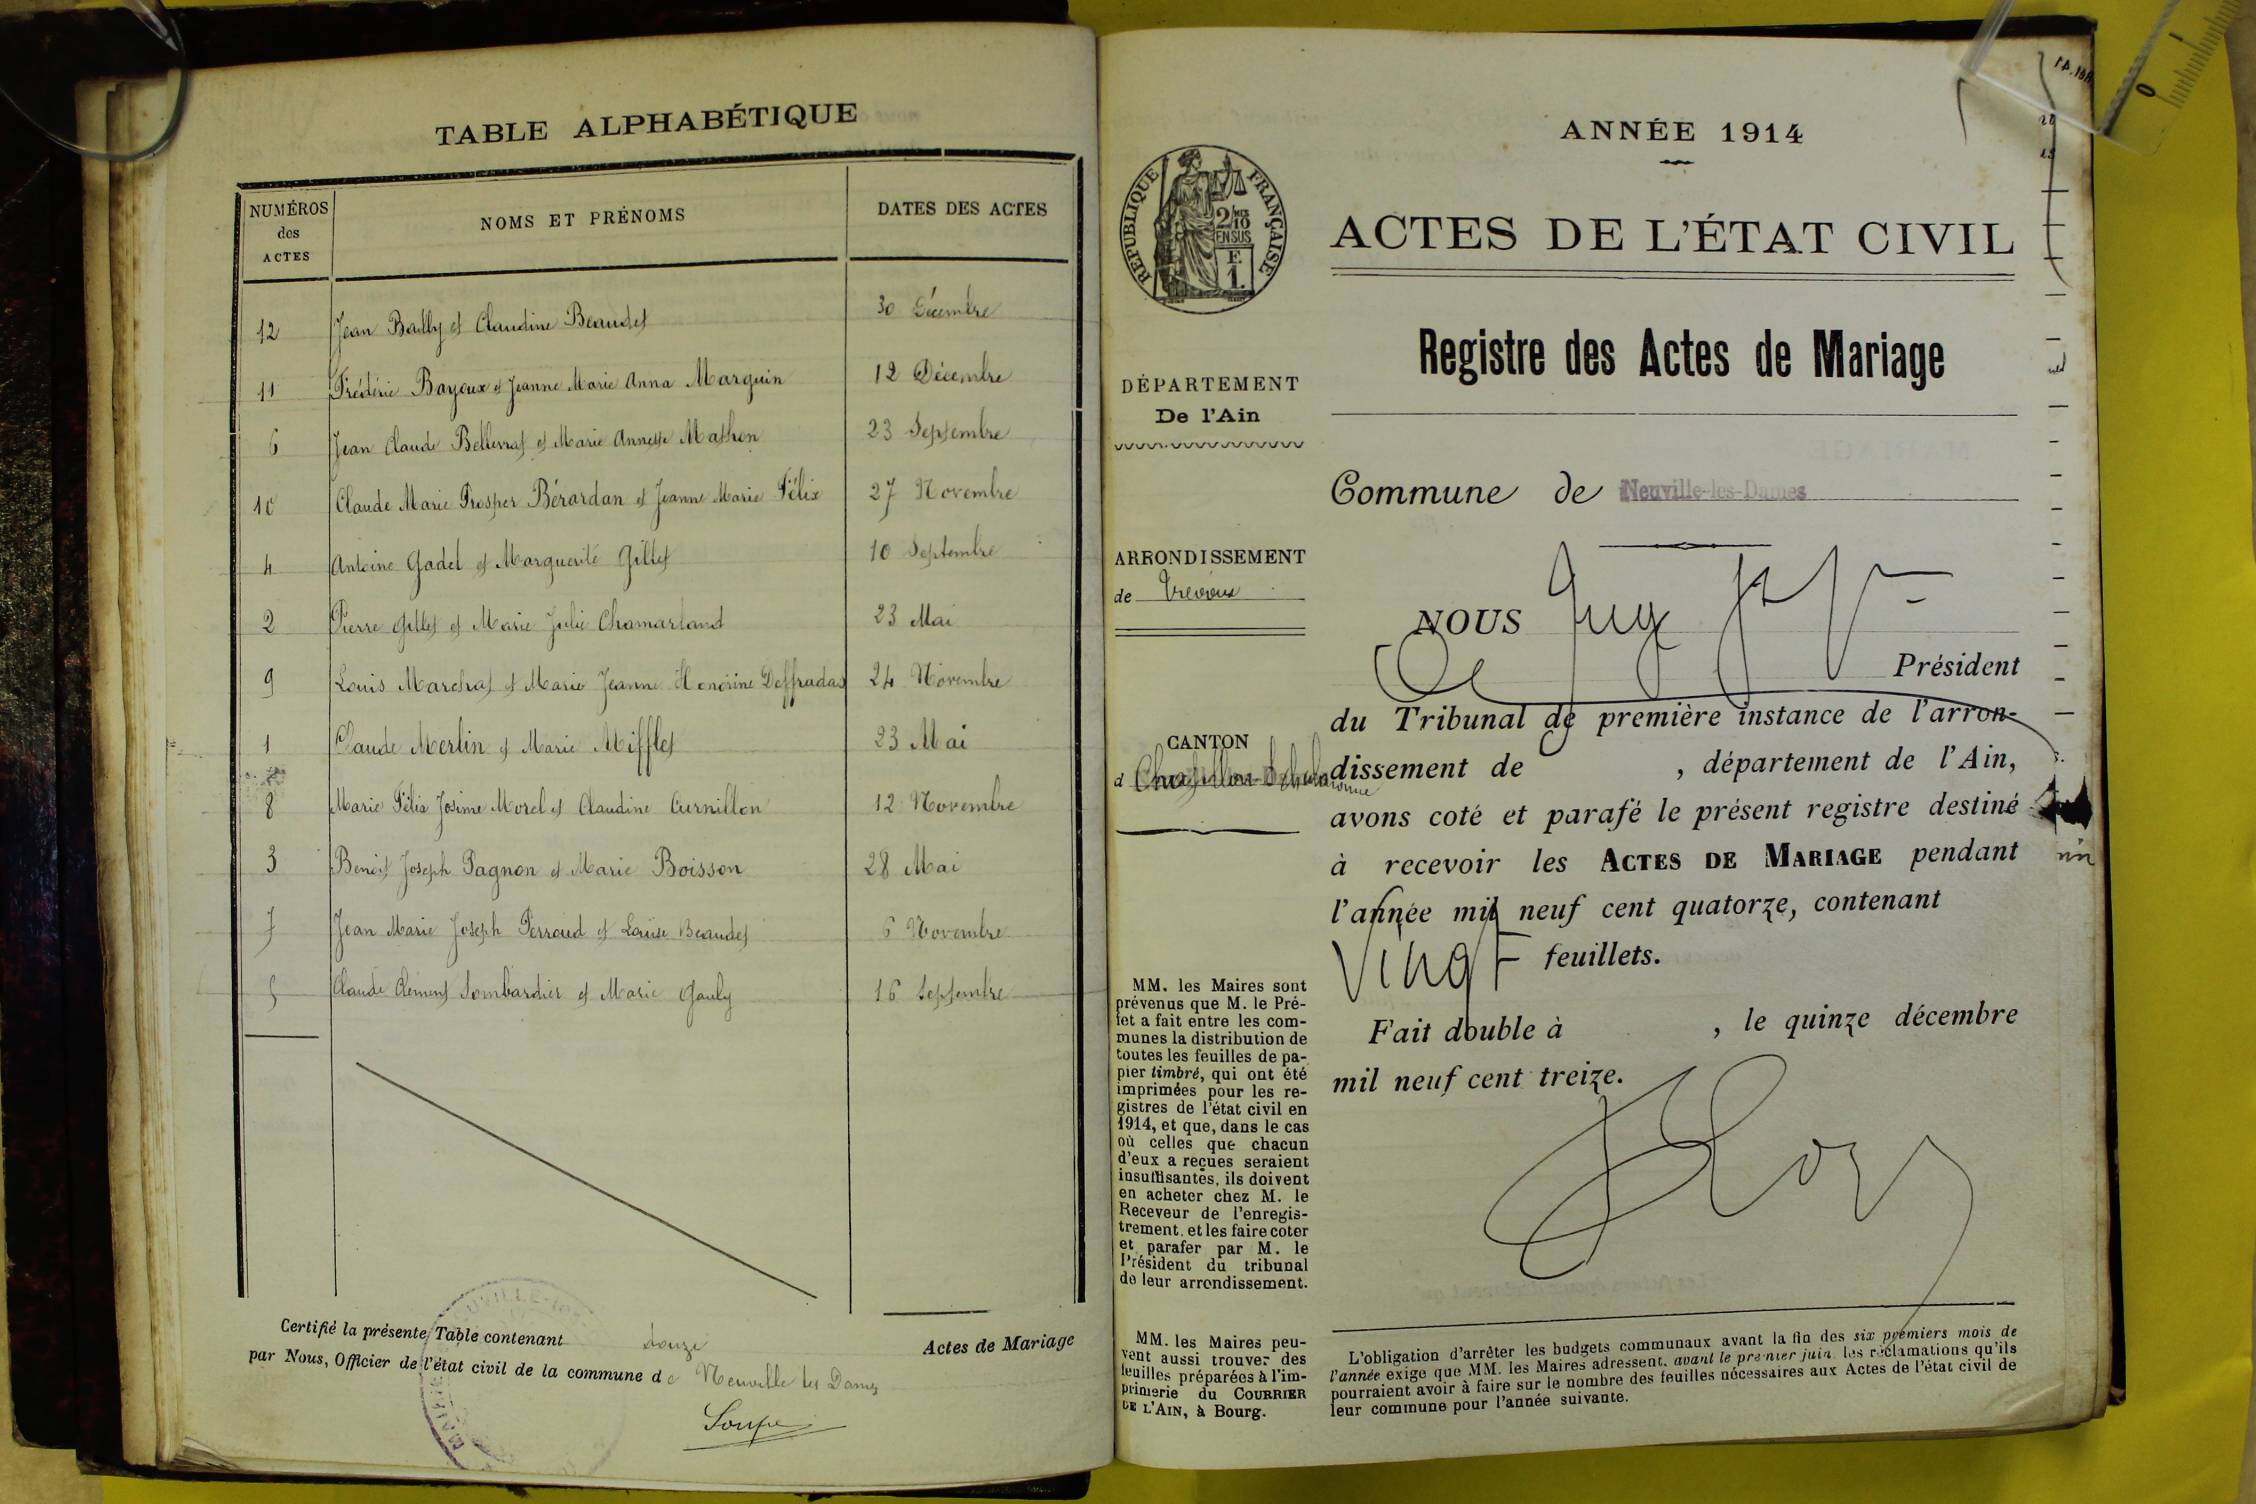 TABLE ALPHABÉTIQUE
NUMÉROS des ACTES
NOMS ET PRÉNOMS
DATES DES ACTES
12 Jean Bailly et Claudine Beaudet 30 Décembre
11 Frédéric Bayoux et Jeanne Marie Anna Marguin 12 Décembre
6 Jean Claude Bellevrat et Marie Annette Mathon 23 Septembre
10 Claude Marie Prosper Bérardan et Jeanne Marie Félix 27 Novembre
4 Antoine Gadel et Marguerite Gillet 10 Septembre
2 Pierre Gillet et Marie Julie Chamarland 23 Mai
9 Louis Marchat et Marie Jeanne Honorine Deffradas 24 Novembre
1 Claude Merlin et Marie Mifflet 23 Mai
8 Marie Félix Josime Morel et Claudine Curnillon 12 Novembre
3 Benoit Joseph Pagnon et Marie Boisson 28 Mai
7 Jean Marie Joseph Perraud et Louise Beaudet 6 Novembre
5 Claude Clément Sombardier et Marie Gauly 16 Septembre
Certifié la présente Table contenant douze Actes de Mariage
par Nous, Officier de l'état civil de la commune de Neuville les Dames
Soupe
RÉPUBLIQUE FRANÇAISE
2/10
EN SUS
F.
1.
DÉPARTEMENT
De l'Ain
ARRONDISSEMENT
de Trévoux
CANTON
d Chatillon
MM. les Maires sont
prévenus que M. le Pré-
fet a fait entre les com-
munes la distribution de
toutes les feuilles de pa-
pier timbré, qui ont été
imprimées pour les re-
gistres de l'état civil en
1914, et que, dans le cas
où celles que chacun
d'eux a reçues seraient
insuffisantes, ils doivent
en acheter chez M. le
Receveur de l'enregis-
trement, et les faire coter
et parafer par M. le
Président du tribunal
de leur arrondissement.
MM. les Maires peu-
vent aussi trouver des
feuilles préparées à l'im-
primerie du COURRIER
DE L'AIN, à Bourg.
ANNÉE 1914
ACTES DE L'ÉTAT CIVIL
Registre des Actes de Mariage
Commune de Neuville-les-Dames
NOUS
Président
du Tribunal de première instance de l'arron-
dissement de , département de l'Ain,
avons coté et parafé le présent registre destiné
à recevoir les ACTES DE MARIAGE pendant
l'année mil neuf cent quatorze, contenant
Vingt feuillets.
Fait double à , le quinze décembre
mil neuf cent treize.
L'obligation d'arrêter les budgets communaux avant la fin des six premiers mois de
l'année exige que MM. les Maires adressent, avant le premier juin, les réclamations qu'ils
pourraient avoir à faire sur le nombre des feuilles nécessaires aux Actes de l'état civil de
leur commune pour l'année suivante.